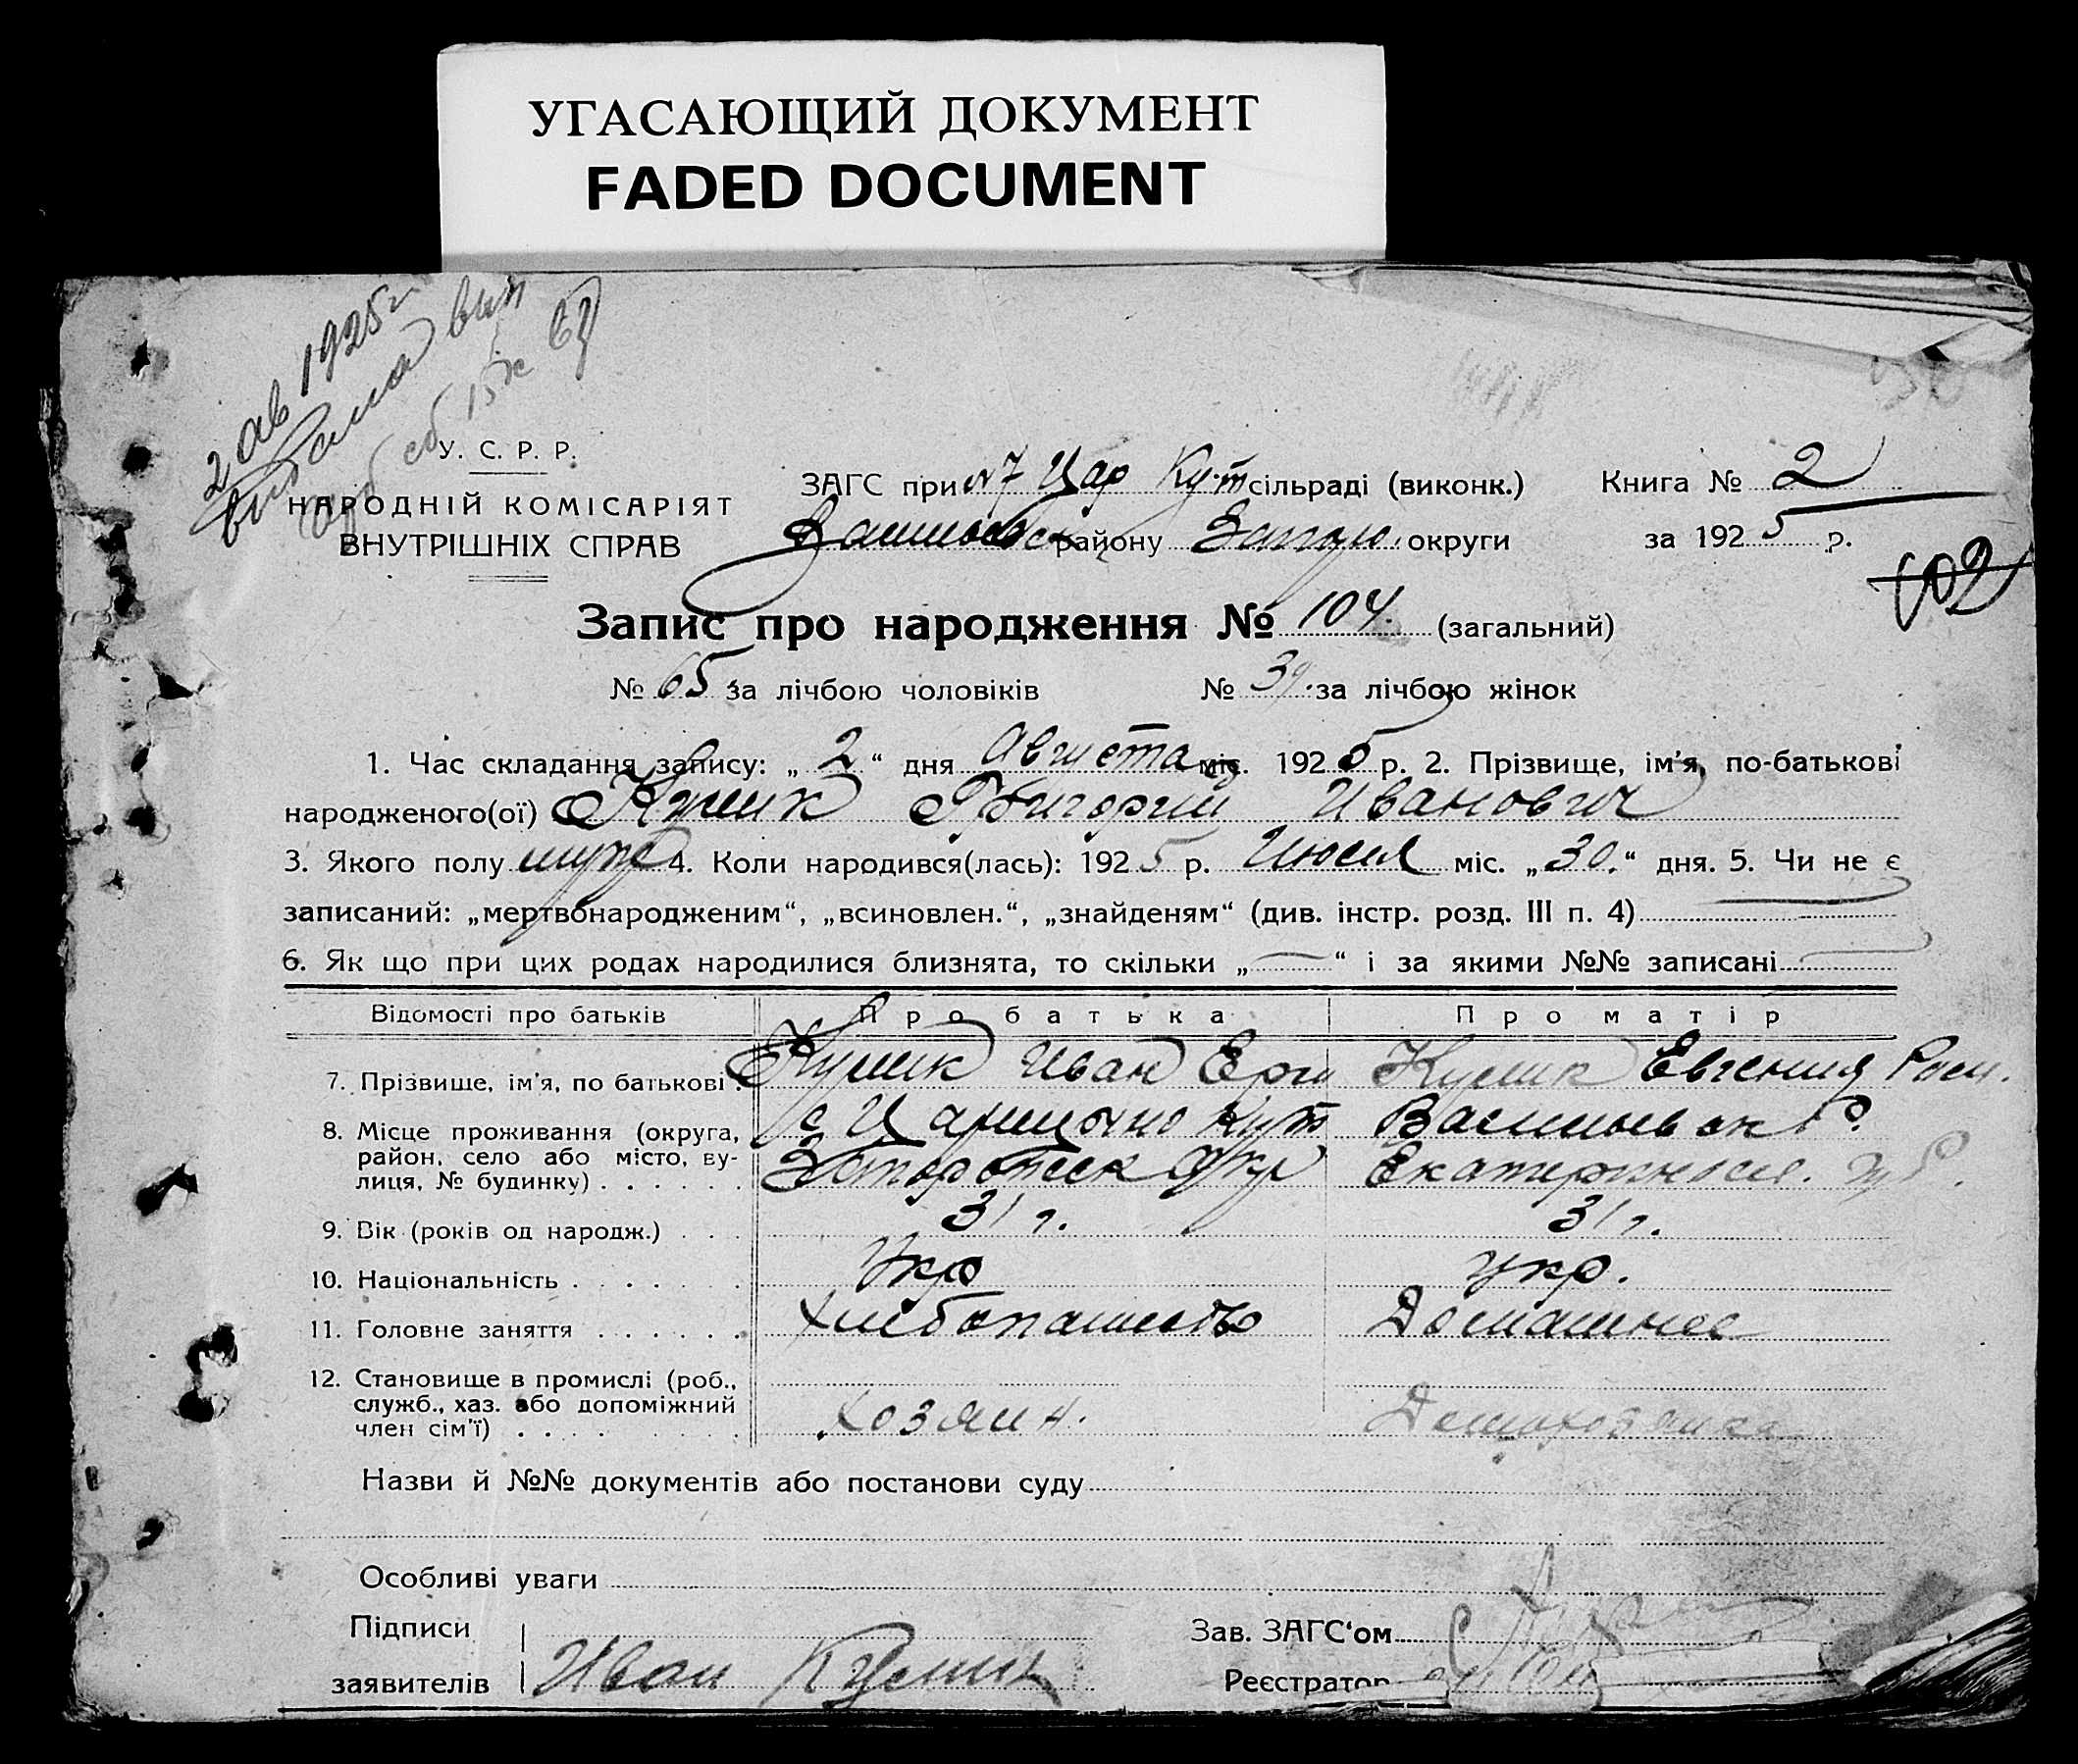 УГАСАЮЩИЙ ДОКУМЕНТ
FADED DOCUMENT
2 ав 1925 г
У. С. Р. Р.
НАРОДНІЙ КОМІСАРІЯТ
ВНУТРІШНІХ СПРАВ
ЗАГС при №7 Цар Кут сільраді (виконк.)
району Запор. округи
Книга № 2
за 1925 р.
102
Запис про народження № 104. (загальний)
№ 65 за лічбою чоловіків № 39. за лічбою жінок
1. Час складання запису: „ 2 “ дня Августа міс. 1925 р. 2. Прізвище, ім'я, по-батькові
народженого(ої) Кулик Григорий Иванович
3. Якого полу муж 4. Коли народився(лась): 1925 р. Июля міс. „30.“ дня. 5. Чи не є
записаний: „мертвонародженим“, „всиновлен.“, „знайденям“ (див. інстр. розд. III п. 4)
6. Як що при цих родах народилися близнята, то скільки „ — “ і за якими №№ записані
Відомості про батьків Про батька Про матір
7. Прізвище, ім'я, по батькові . Кулик Иван Кулик Евгения
8. Місце проживання (округа, район, село або місто, вулиця, № будинку) . . . . . .
с Царицыно Кут Васильевск Р.
Запорожск Окр Екатериносл. губ.
9. Вік (років од народж.) . . . 31 г. 31 г.
10. Національність . . . . . . . Укр укр.
11. Головне заняття . . . . . . Хлебопашество Домашнее
12. Становище в промислі (роб.,
служб., хаз. або допоміжний
член сім'ї) . . . . . . . . . Хозяин. Домохозяйка
Назви й №№ документів або постанови суду
Особливі уваги
Підписи
заявителів Иван Кулик
Зав. ЗАГС‘ом
Реєстратор